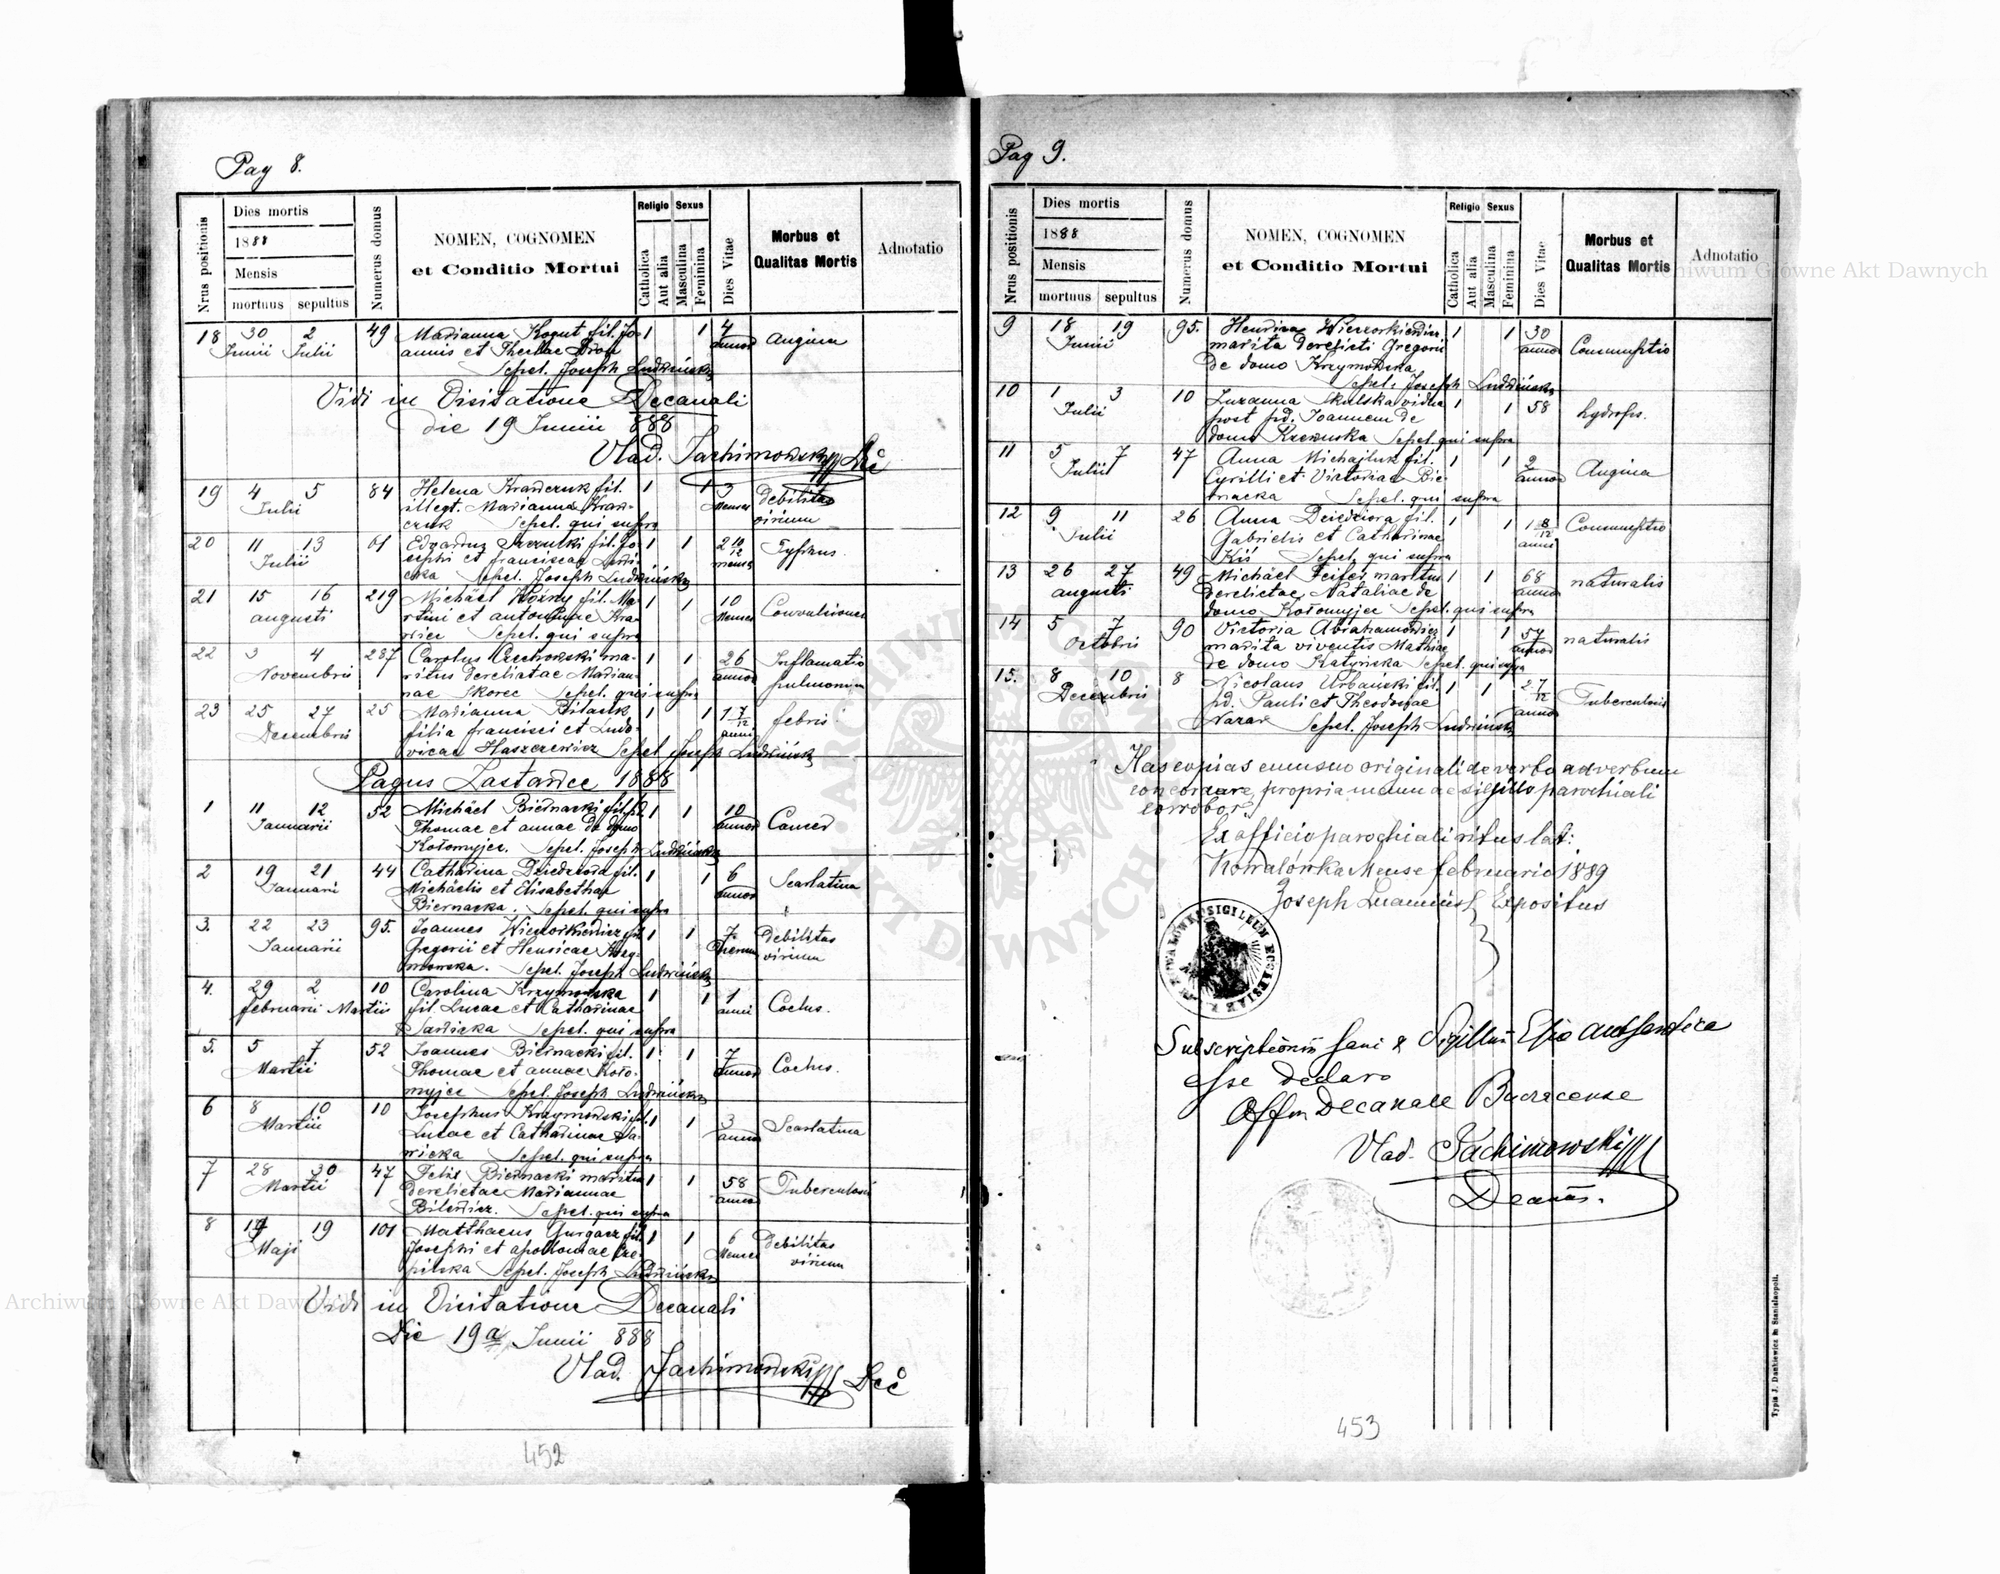 Pag 8.
Nrus positionis
Dies mortis
1888
Mensis
mortuus sepultus
Numerus domus
NOMEN, COGNOMEN
et Conditio Mortui
Religio Sexus
Catholica
Aut alia
Masculina
Feminina
Dies Vitae
Morbus et
Qualitas Mortis
Adnotatio
18 30 2 49 Marianna Kogut fil. Jo- 1 1 4
Junii Julii annis et Theclae annor Angina
Sepel. Joseph Ludwiński
Vidi in Visitatione Decanali
die 19 Junii 888
Vlad. Jachimowski Dec
19 4 5 84 Helena Krawczuk fil. 1 1 3 debilitas
Julii illegt. Marianna Kraw- Menses virium
czuk Sepel. qui supra
20 11 13 61 Eduardus fil. Jo- 1 1 2 10/12 Tyfus.
Julii sephi et franciscae
Sepel. Joseph Ludwiński
21 15 16 219 Michäel fil. Ma- 1 1 10 Convulsiones
augusti rtini et antoninae Kra- Menses
wiec Sepel. qui supra
22 3 4 287 Carolus Czechowski ma- 1 1 26 Inflamatio
Novembris ritus derelictae Marian- annor pulmonum
nae Skorec Sepel. qui supra
23 25 27 25 Marianna 1 1 1 7/12 febris
Decembris filia francisci et Ludo- anni
vicae Haszczewicz Sepel Joseph Ludwiński
Pagus Zastawce 1888
1 11 12 52 Michäel Biernacki fil. 1 1 10 Cancer
Januarii Thomae et annae de domo annor
Kołomyjec. Sepel. Joseph Ludwiński
2 19 21 44 Catharina Dziedziora fil. 1 1 6 Scarlatina
Januarii Michäelis et Elisabethae annor
Biernacka. Sepel. qui supra
3. 22 23 95. Joannes Wierzorkiewicz fil. 1 1 7 debilitas
Januarii Gregorii et Henricae Krzy- Dierum virium
mowska. Sepel. Joseph Ludwiński
4. 29 2 10 Carolina Krzymowska 1 1 1 Coclus.
februarii Martii fil. Lucae et Catharinae anni
Sawicka Sepel. qui supra
5. 5 7 52 Joannes Biernacki fil. 1 1 7 Coclus.
Martii Thomae et annae Koło- annor
myjec Sepel. Joseph Ludwiński
6 8 10 10 Josephus Krzymowski fil. 1 1 3 Scarlatina
Martii Lucae et Catharinae Sa- annor
wicka Sepel. qui supra
7 28 30 47 Petrus Biernacki maritus 1 1 58 Tuberculosis
Martii derelictae Mariannae annor
Bilewicz. Sepel. qui supra
8 19 101 Matthaeus Gurgacz fil. 1 1 6 debilitas
Maji Josephi et apolloniae Menses virium
Sepel. Joseph Ludwiński
Vidi in Visitatione Decanali
Die 19a Junii 888
Vlad. Jachimowski Dec
452
Pag 9.
Nrus positionis
Dies mortis
1888
Mensis
mortuus sepultus
Numerus domus
NOMEN, COGNOMEN
et Conditio Mortui
Religio Sexus
Catholica
Aut alia
Masculina
Feminina
Dies Vitae
Morbus et
Qualitas Mortis
Adnotatio
9 18 19 95. Henrica Wierzorkiewicz 1 1 30 Consumptio
Junii marita derelicti Gregorii annor
de domo Krzymowska
Sepel. Joseph Ludwiński
10 1 3 10 Zuzanna Skulska vidua 1 1 58 hydrops.
Julii post pd. Joannem de
domo Sepel. qui supra
11 5 7 47 Anna Michajluk fil. 1 1 2 Angina
Julii Cyrilli et Victoriae Bie- annor
rnacka Sepel. qui supra
12 9 11 26 Anna Dziedziora fil. 1 1 1 8/12 Consumptio
Julii Gabrielis et Catharinae anni
Kiś Sepel. qui supra
13 26 27 49 Michäel Feifer maritus 1 1 68 naturalis
augusti derelictae Nataliae de annor
domo Kołomyjec Sepel. qui supra
14 5 7 90 Victoria Abrahamowicz 1 1 54 naturalis
Octobris marita viventis Mathiae annor
de domo Katyńska Sepel. qui supra
15. 8 10 8 Nicolaus Urbański fil. 1 1 2 7/12 Tuberculosis
Decembris pd. Pauli et Theodosiae annor
Nazar Sepel. Joseph Ludwiński
Has copias cum suo originali de verbo ad verbum
concordare, propria manu ac sigillo parochiali
corrobor.
Ex officio parochiali ritus lat:
Kowalówka Mense februario 1889
Joseph Expositus
KOWALÓWKA SIGILLUM ECCLESIAE
Subscriptionem hanc & Sigillum Esse authentica
esse declaro
Offm Decanale Buczacense
Vlad. Jachimowski
Decanus.
453
Typis J. Dankiewicz in Stanislaopoli.
Archiwum Główne Akt Dawnych
Archiwum Główne Akt Dawnych
ARCHIWUM GŁÓWNE AKT DAWNYCH